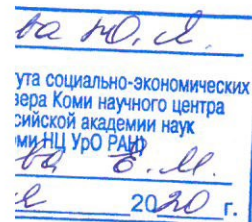 ва Ю. Я.
ута социально-экономических
вера Коми научного центра
сийской академии наук
ми НЦ УрО РАН)
ва Е. М.
2020 г.